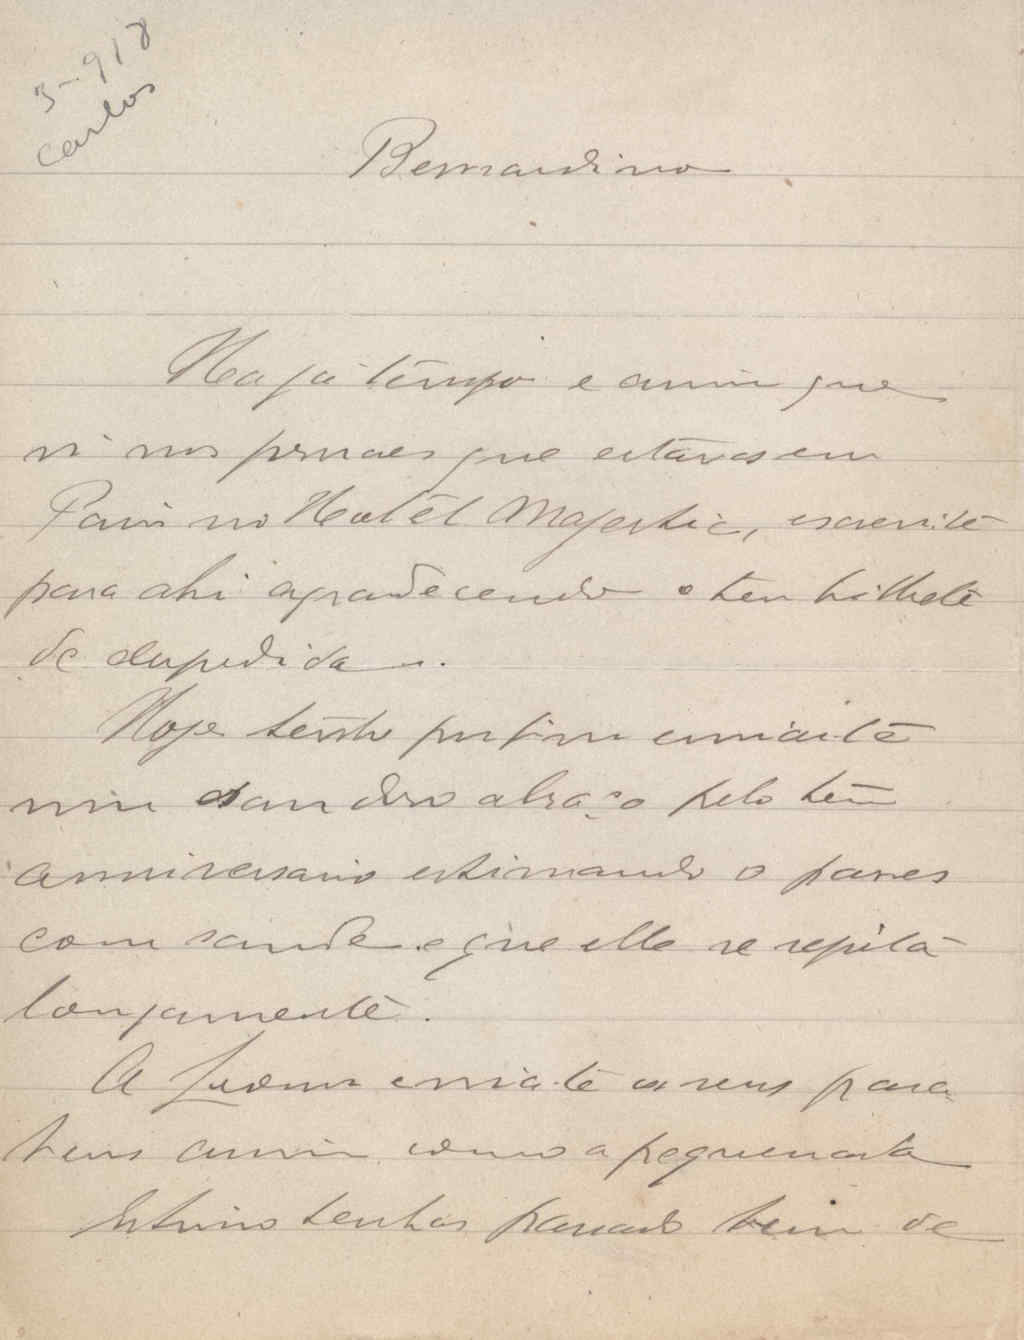 3-918
Carlos
Bernardino
Ha já tempo e assim que
vi nos jornaes que estavas em
Paris no Hotêl Majestic, escrevi-te
para ahi agradecendo o teu bilhete
de despedida.
Hoje tenho por fim enviar-te
um saudoso abraço pelo teu
anniversario estimando o passes
com saude e que elle se repita
longamente.
A envia-te os seus para
bens assim como a pequenada
Estimo tenhas passado bem de